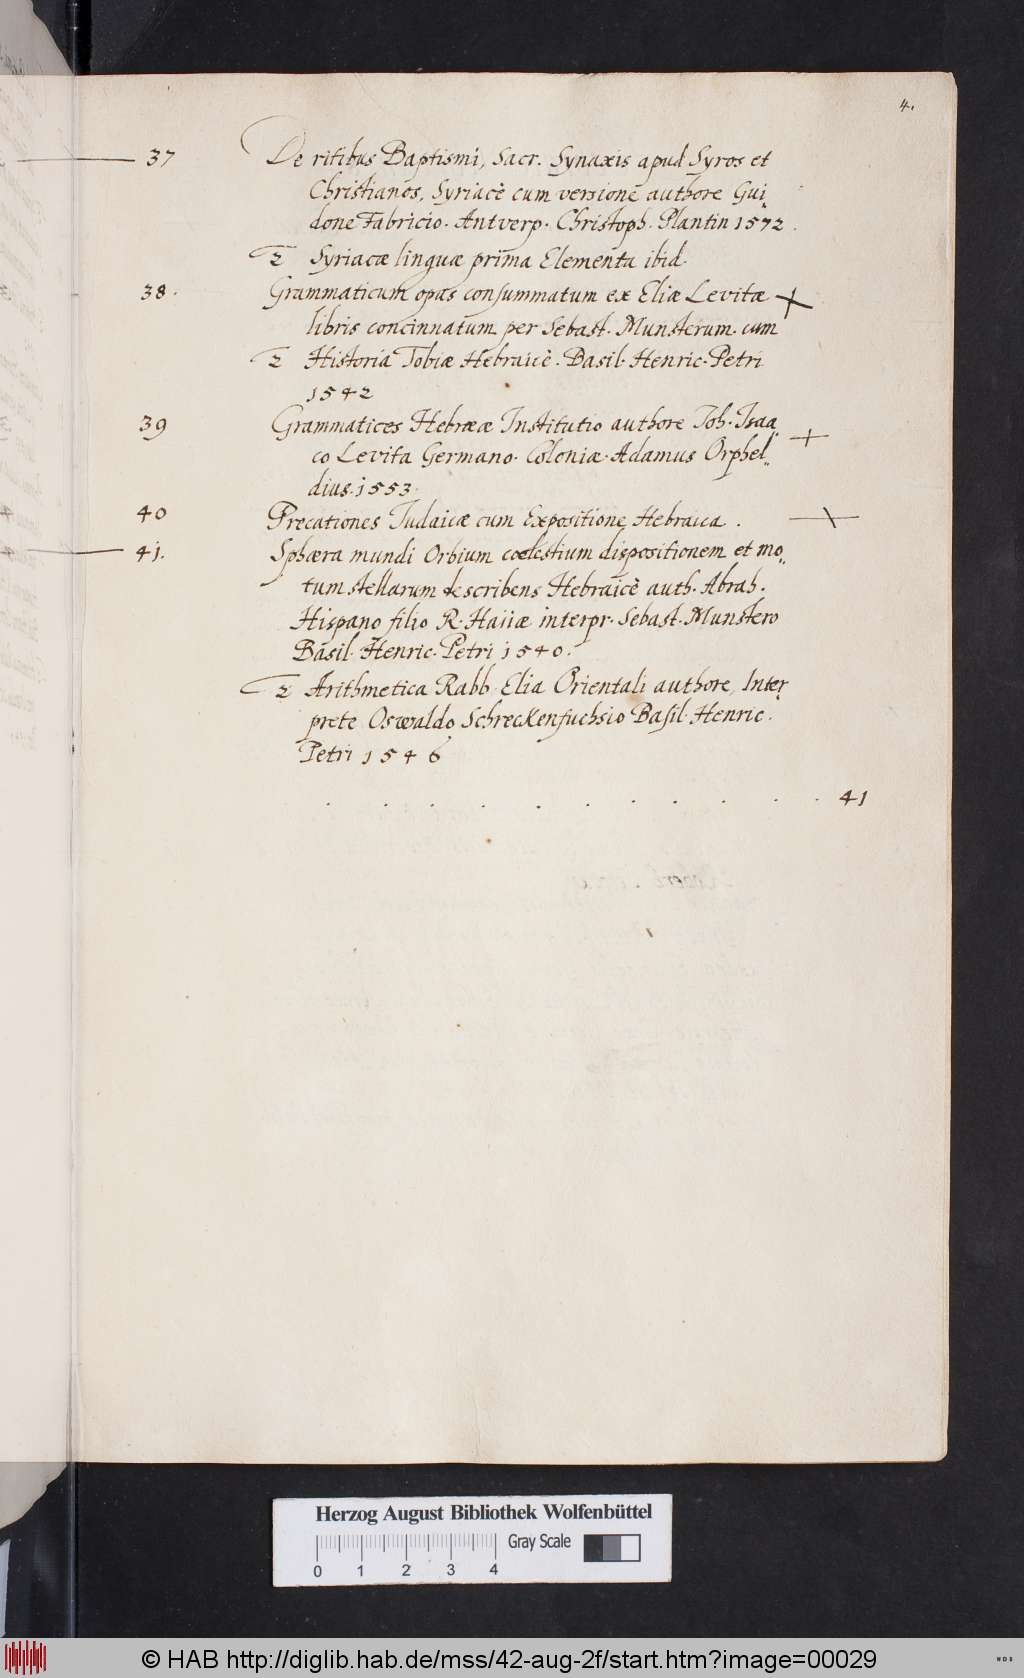 4.
37 De ritibus Baptismi, Sacr. Synaxis apud Syros et
Christianos, Syriacè cum versione authore Gui„
done Fabricio. Antverp. Christoph. Plantin 1572.
2 Syriacæ linguæ prima Elementa ibid.
38. Grammaticum opus consummatum ex Eliæ Levitæ
libris concinnatum per Sebast. Munsterum. cum
2 Historia Tobiæ Hebraicè. Basil. Henric. Petri
1542
39 Grammatices Hebrææ Institutio authore Joh. Isaa„
co Levita Germano. Coloniæ. Adamus Orphel„
dius. 1553.
40 Precationes Judaicæ cum Expositione Hebraica.
41. Sphæra mundi Orbium coelestium dispositionem et mo„
tum stellarum describens Hebraicè auth. Abrah.
Hispano filio R. Haiiæ interpr. Sebast. Munstero
Basil. Henric. Petri 1540.
2 Arithmetica Rabb. Elia Orientali authore, Inter„
prete Oswaldo Schreckenfuchsio Basil. Henric.
Petri 1546
. . . . . . . . . . 41
Herzog August Bibliothek Wolfenbüttel
Gray Scale
0 1 2 3 4
© HAB http://diglib.hab.de/mss/42-aug-2f/start.htm?image=00029